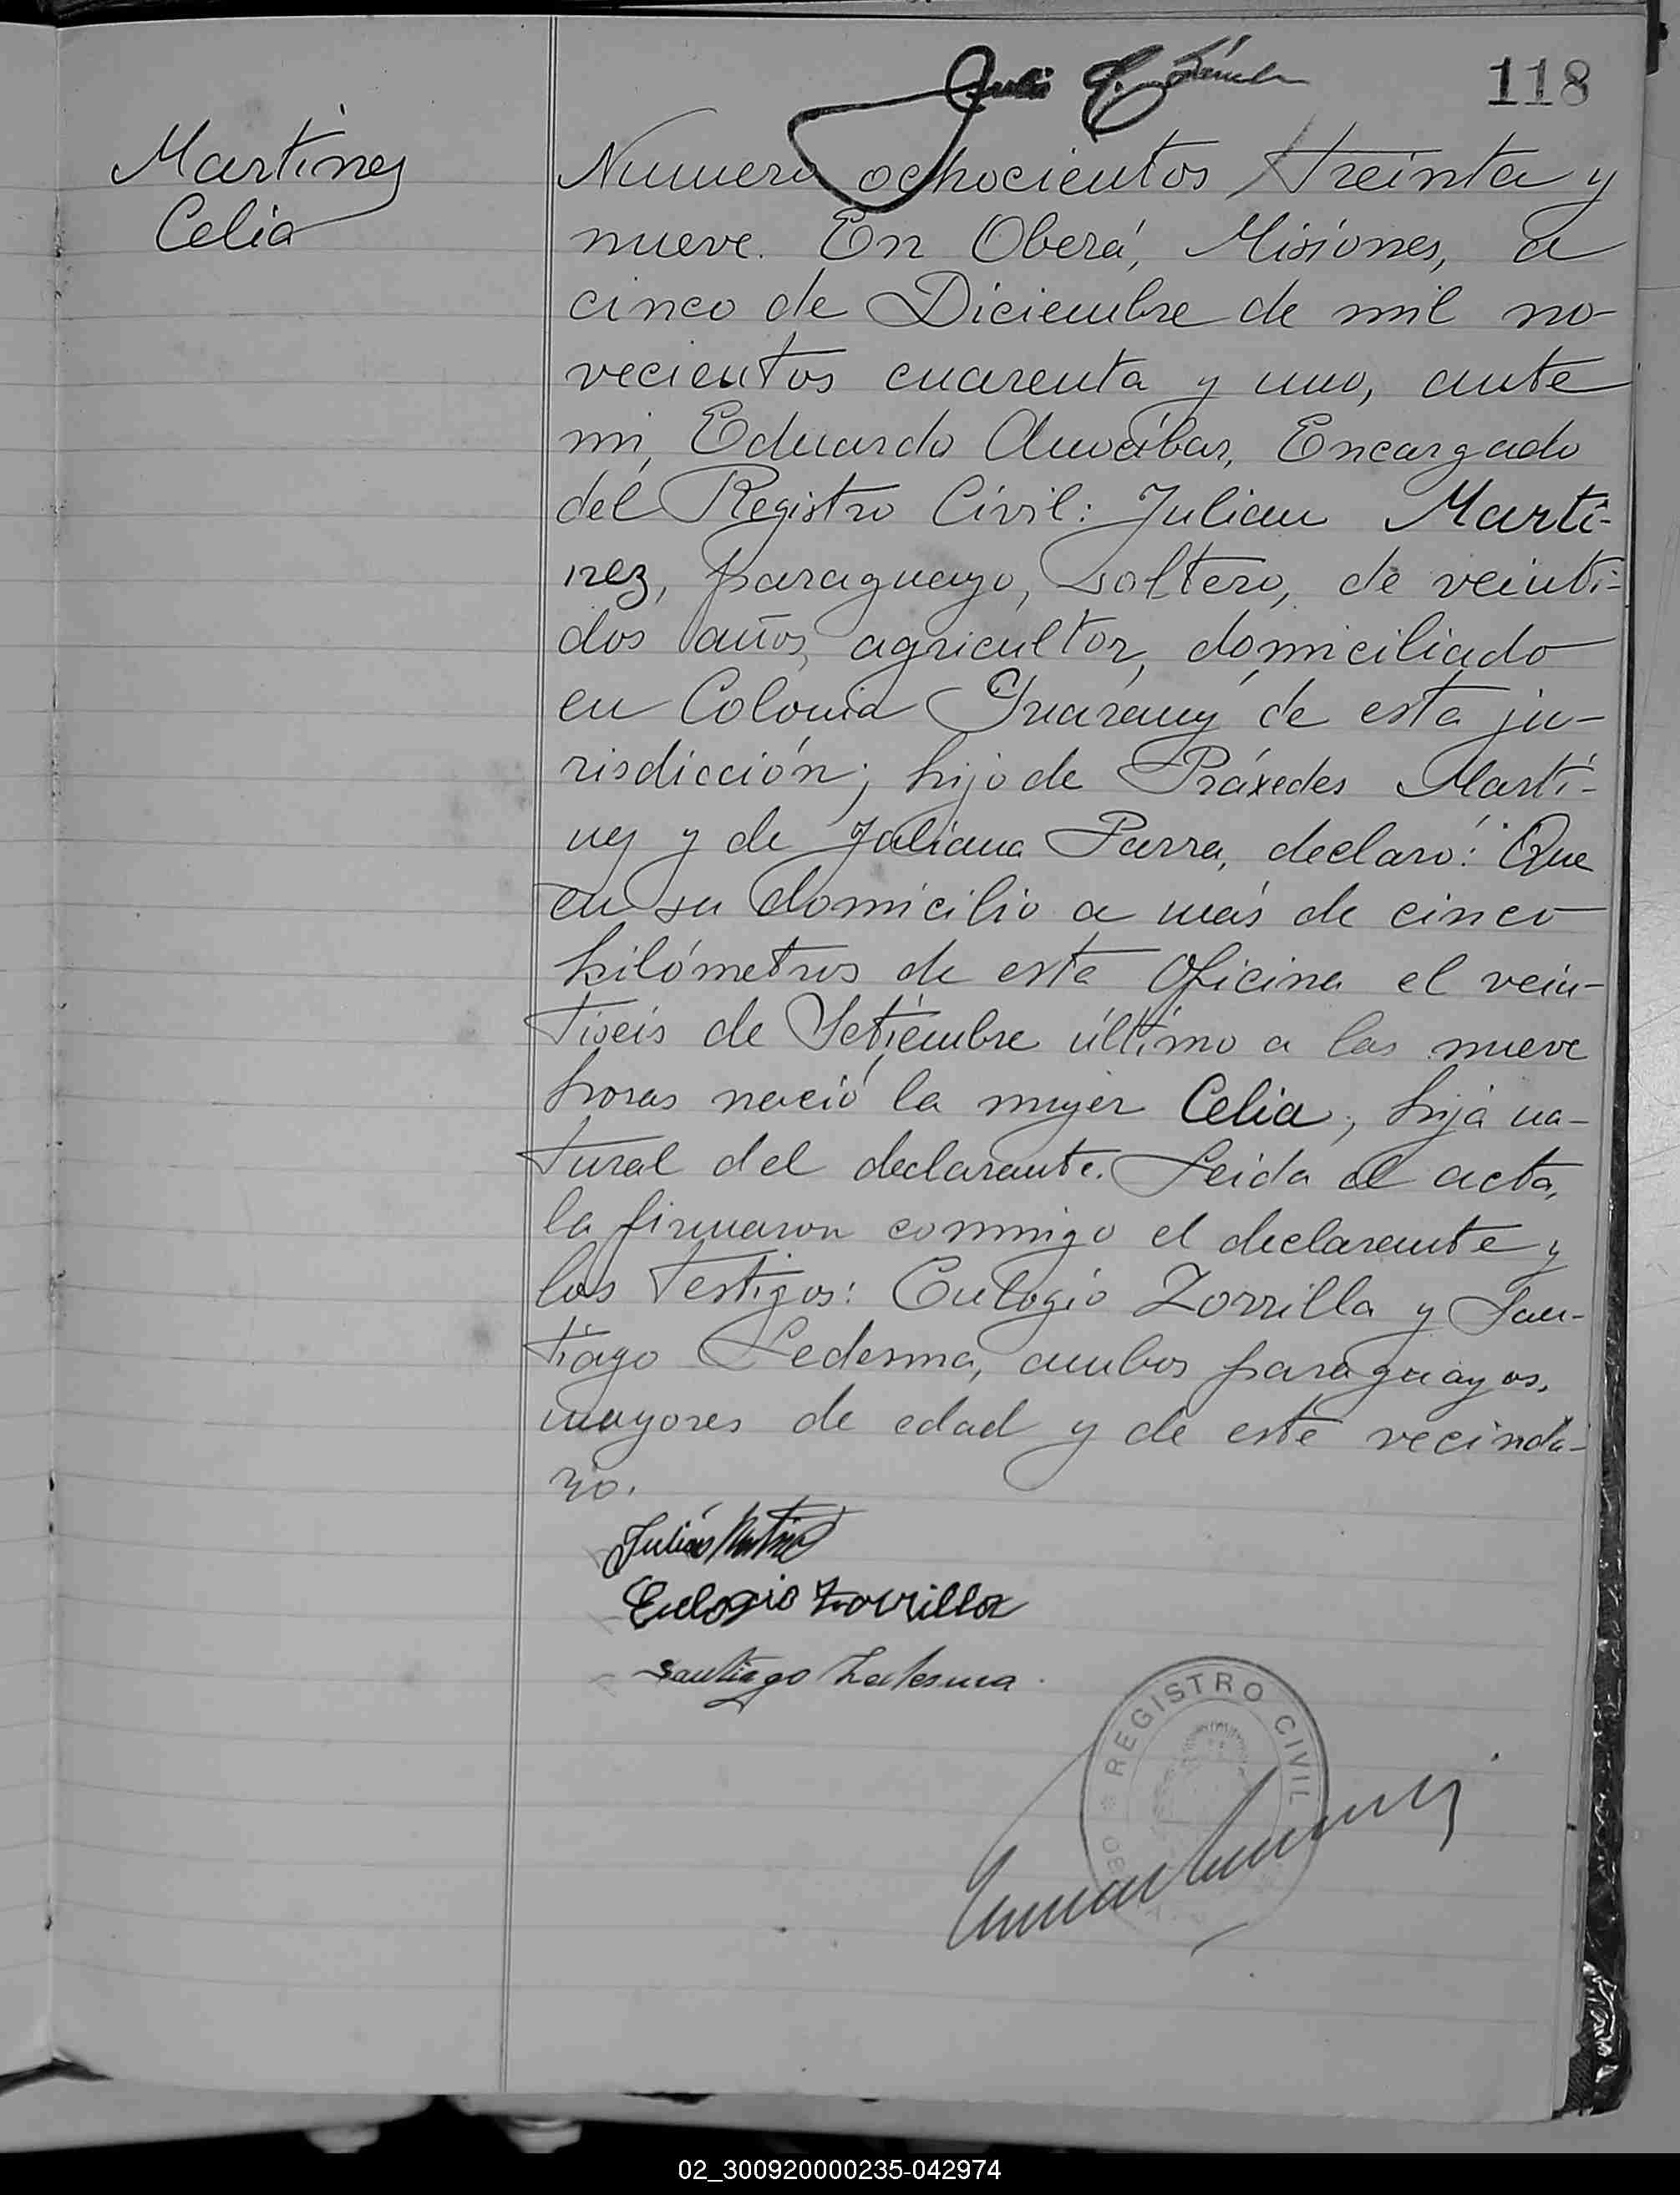 118
Martinez
Celia
Numero ochocientos treinta y
nueve. En Oberá, Misiones, a
cinco de Diciembre de mil no-
vecientos cuarenta y uno, ante
mi, Eduardo Encargado
del Registro Civil: Julian Martí-
nez, paraguayo, soltero, de veinti-
dos años, agricultor, domiciliado
en Colonia Guarany de esta ju-
risdicción; hijo de Práxedes Martí-
nez y de Juliana Parra, declaró: Que
en su domicilio a más de cinco
kilómetros de esta Oficina el vein-
tiseis de Setiembre último a las nueve
horas nació la mujer Celia, hija na-
tural del declarante. Leida el acta,
la firmaron conmigo el declarante y
los testigos: Eulogio Zorrilla y San-
tiago Ledesma, ambos paraguayos,
mayores de edad y de este vecinda-
rio.
Julián
Eulogio Zorrilla
Santiago Ledesma
REGISTRO CIVIL
02_300920000235-042974